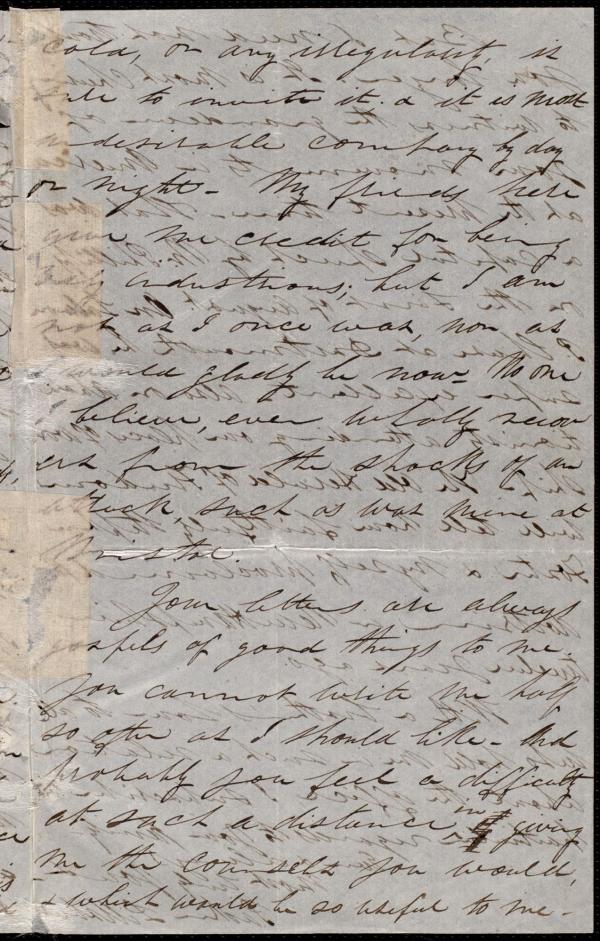 cold, or any irregularity, is
sure to invite it. & it is most
undesirable company by day
or night - My friends here
give me credit for being
industrious; but I am
as I once was, nor as
I would gladly be now - No one
I believe, ever wholly recov
ers from the shocks of an
attack, such as was mine at
Bristol.
Your letters are always
gospels of good things to me.
You cannot write me half
so often as I should like - And
probably you feel a difficulty
at such a distance, in giving
me the counsels you would,
& which would be so useful to me -